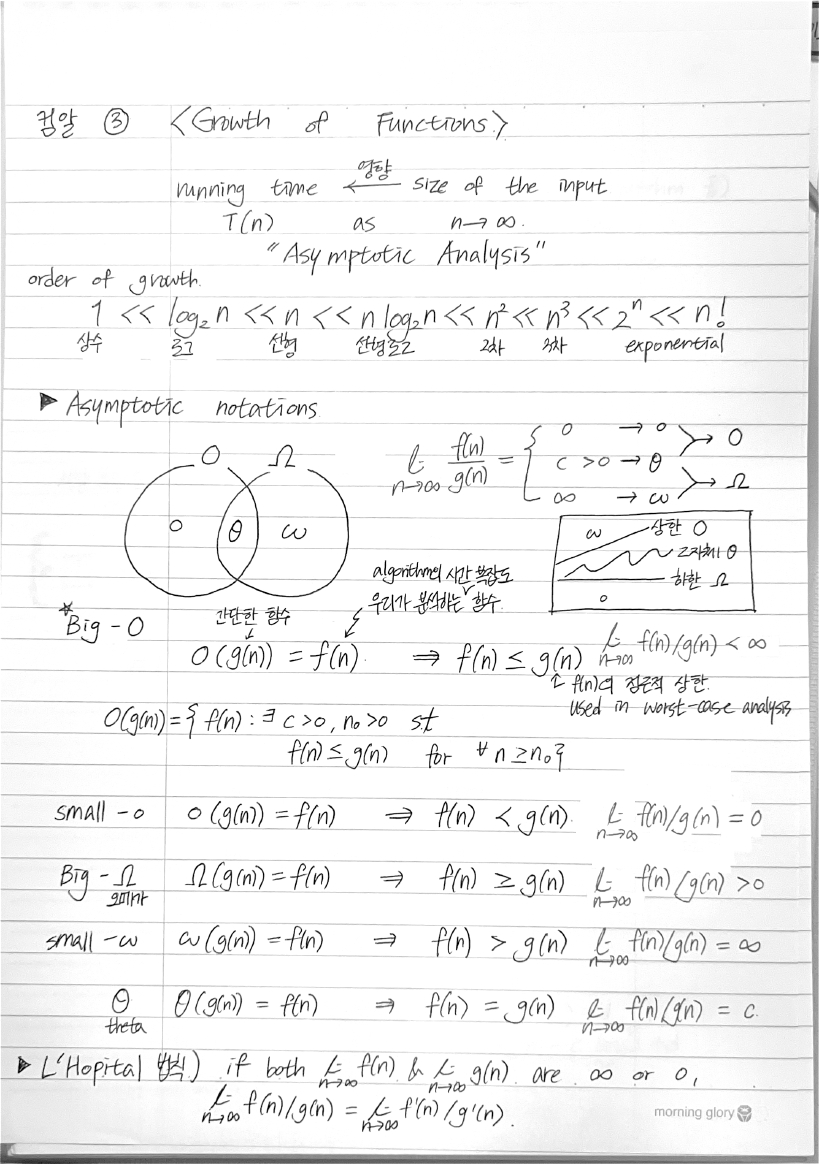 컴알 ③ <Growth of Functions>
running time ←영향— size of the input
T(n) as n→∞.
"Asymptotic Analysis"
order of growth.
1 << log₂n << n << n log₂n << n² << n³ << 2ⁿ << n!
상수 로그 선형 선형로그 2차 3차 exponential
▶ Asymptotic notations
O Ω
o θ ω
lim n→∞ f(n)/g(n) = {
0 → o
c >0 → θ
∞ → ω
→ O
→ Ω
ω 상한 O
그자체 θ
하한 Ω
o
algorithm의 시간 복잡도
우리가 분석하는 함수.
간단한 함수
*Big - O
O(g(n)) = f(n). ⇒ f(n) ≤ g(n) lim n→∞ f(n)/g(n) < ∞
↑ f(n)의 점근적 상한.
used in worst-case analysis
O(g(n)) = { f(n) : ∃ c>0, n₀>0 s.t
f(n) ≤ g(n) for ∀n ≥ n₀}
small - o o(g(n)) = f(n) ⇒ f(n) < g(n). lim n→∞ f(n)/g(n) = 0
Big - Ω Ω(g(n)) = f(n) ⇒ f(n) ≥ g(n) lim n→∞ f(n)/g(n) >0
오메가
small - ω ω(g(n)) = f(n) ⇒ f(n) > g(n) lim n→∞ f(n)/g(n) = ∞
θ θ(g(n)) = f(n) ⇒ f(n) = g(n) lim n→∞ f(n)/g(n) = c.
theta
▶ L'Hopital 법칙) if both lim n→∞ f(n) & lim n→∞ g(n) are ∞ or 0,
lim n→∞ f(n)/g(n) = lim n→∞ f'(n)/g'(n).
morning glory